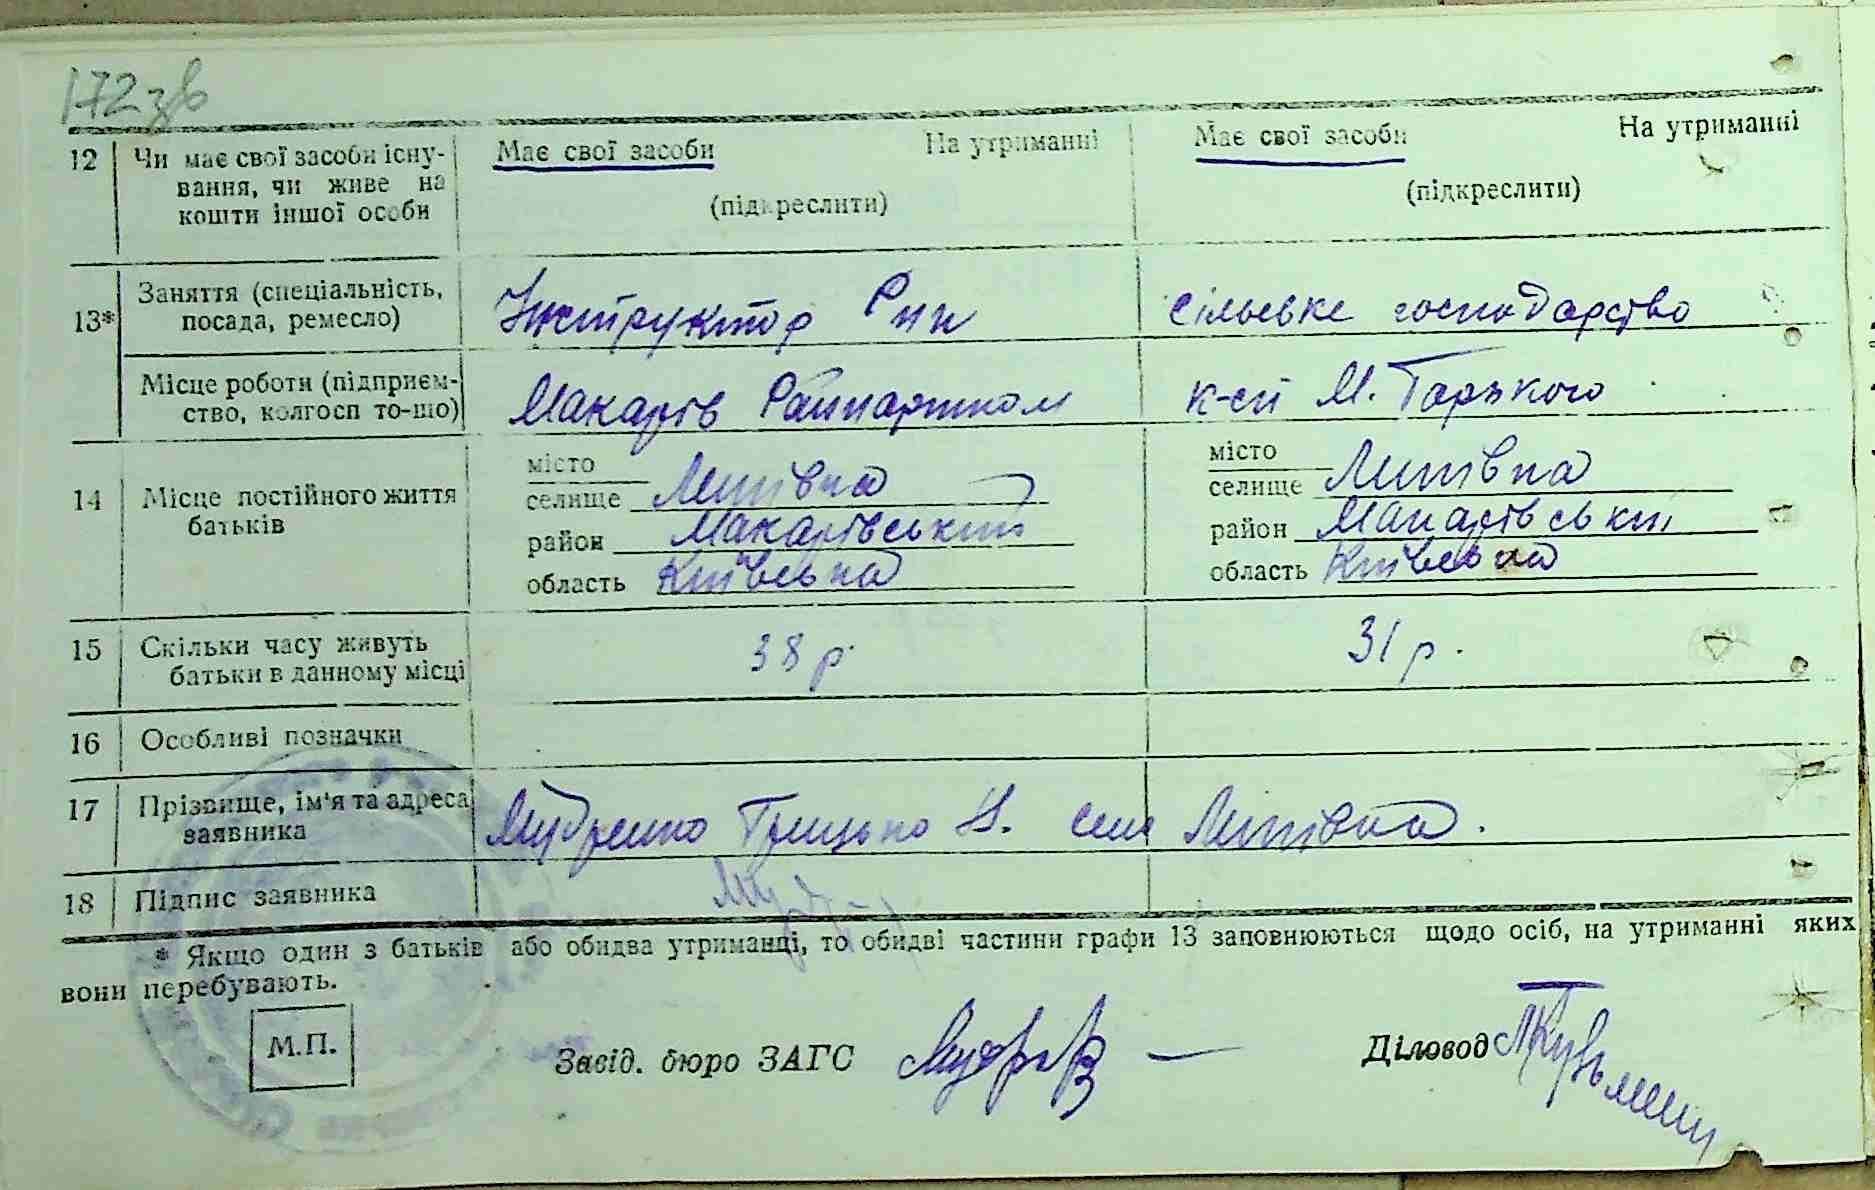 172зв
12 Чи має свої засоби існу- Має свої засоби На утриманні Має свої засоби На утриманні
вання, чи живе на
кошти іншої особи (підкреслити) (підкреслити)
13* Заняття (спеціальність, Інструктор Рпк сільське господарство
посада, ремесло)
Місце роботи (підприєм- Макарів Райпартком к-сп М. Горького
ство, колгосп то-що)
14 Місце постійного життя місто місто
батьків селище Липівка селище Липівка
район Макарівський район Макарівський
область Київська область Київська
15 Скільки часу живуть 38 р. 31 р.
батьки в данному місці
16 Особливі позначки
17 Прізвище, ім'я та адреса Мудренко Грицько Н. село Липівка.
заявника
18 Підпис заявника
* Якщо один з батьків або обидва утриманці, то обидві частини графи 13 заповнюються щодо осіб, на утриманні яких
вони перебувають.
М.П. Завід. бюро ЗАГС Діловод